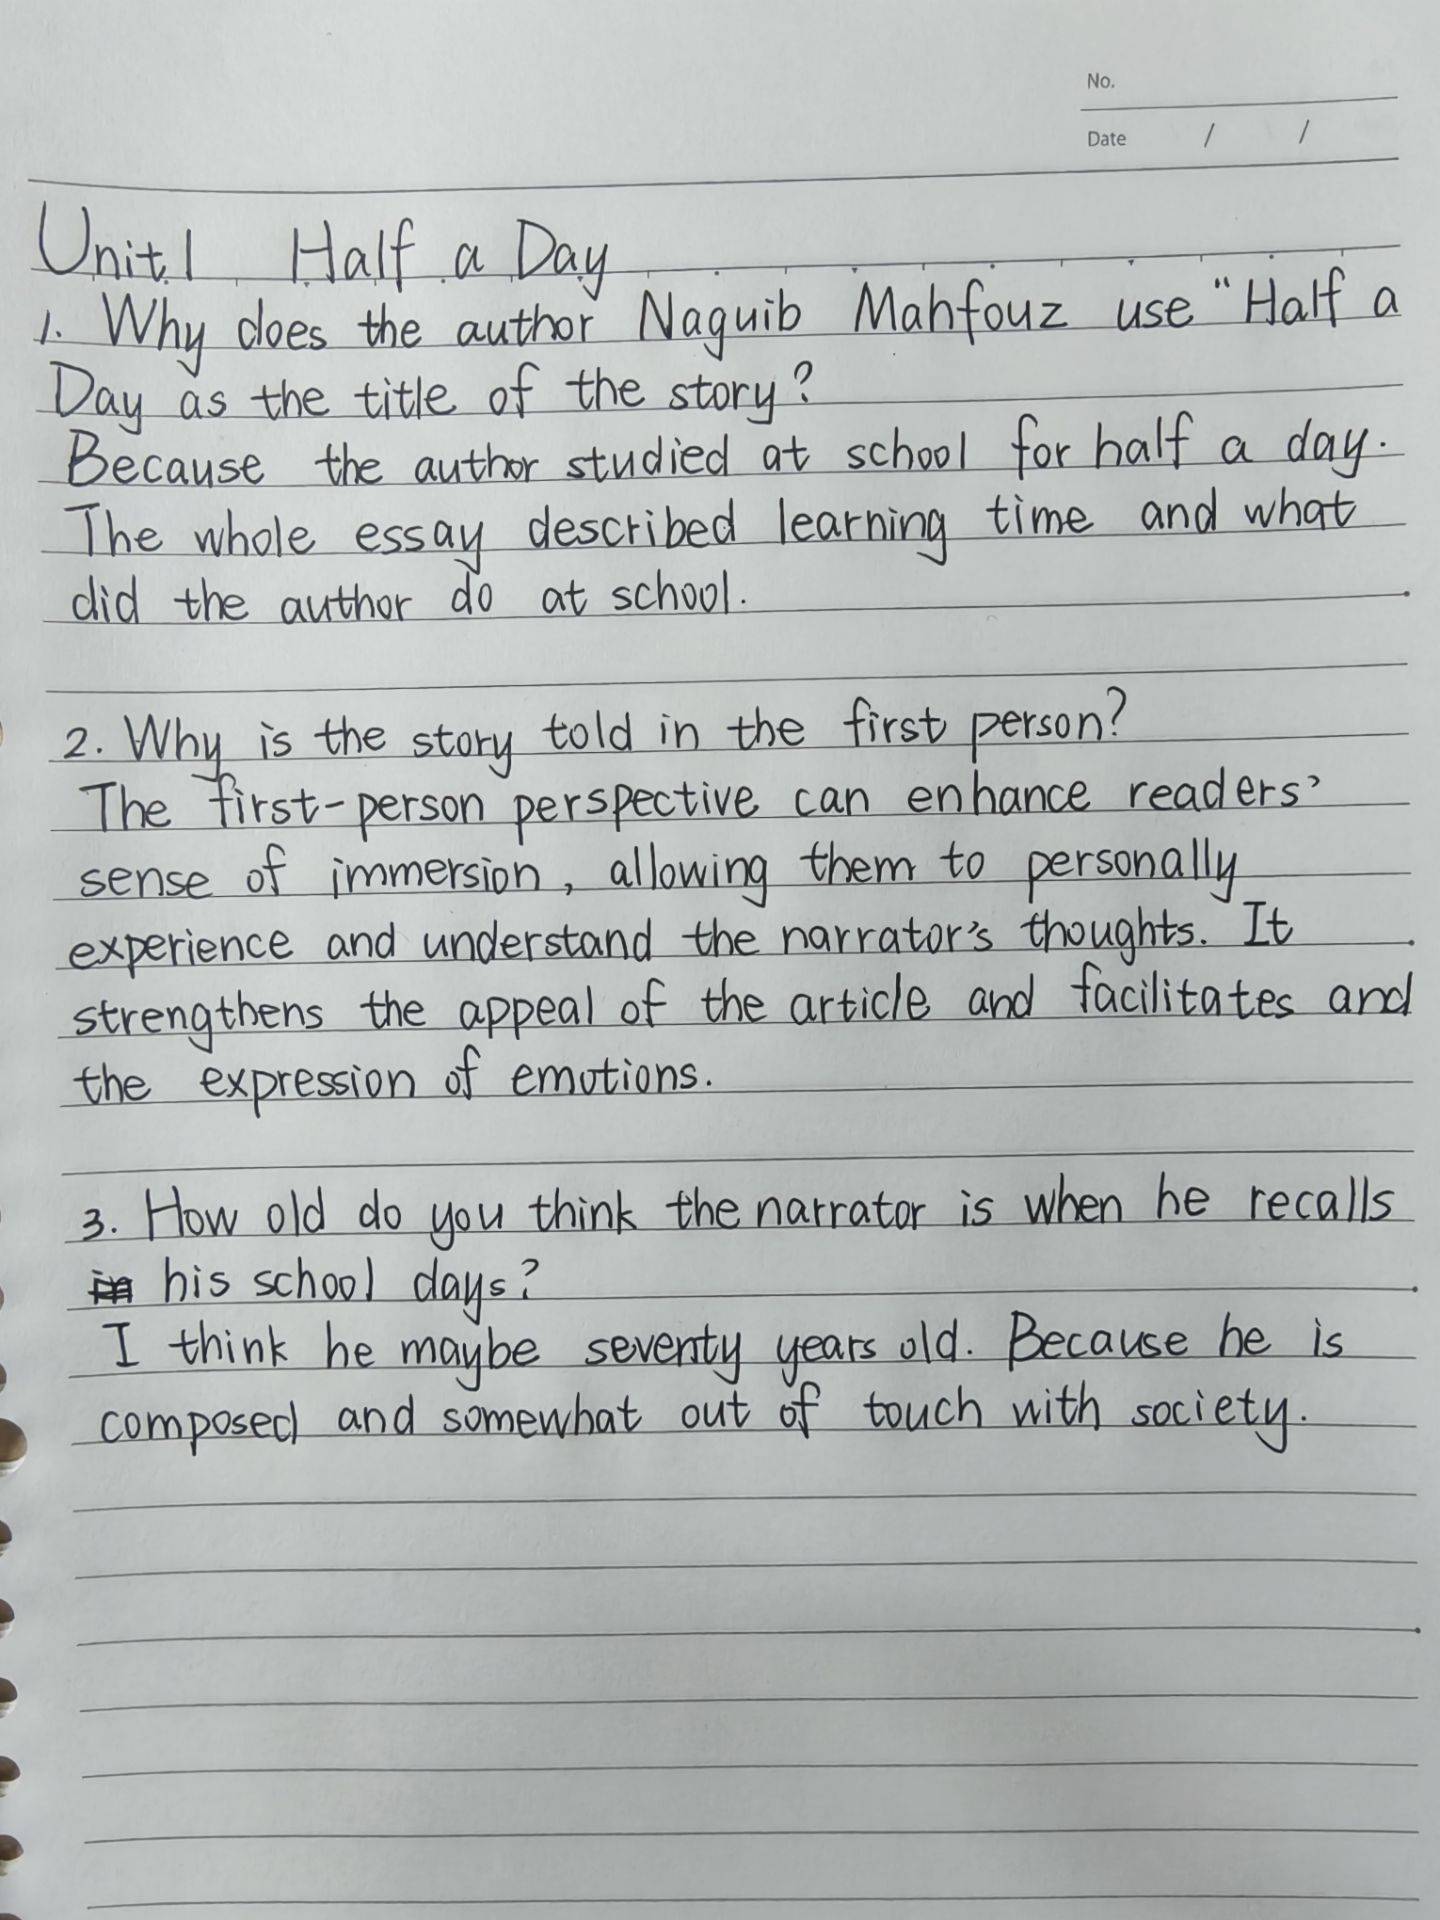 No.
Date / /
Unit 1 Half a Day
1. Why does the author Naguib Mahfouz use "Half a
Day as the title of the story?
Because the author studied at school for half a day.
The whole essay described learning time and what
did the author do at school.
2. Why is the story told in the first person?
The first-person perspective can enhance readers'
sense of immersion, allowing them to personally
experience and understand the narrator's thoughts. It
strengthens the appeal of the article and facilitates and
the expression of emotions.
3. How old do you think the narrator is when he recalls
his school days?
I think he maybe seventy years old. Because he is
composed and somewhat out of touch with society.